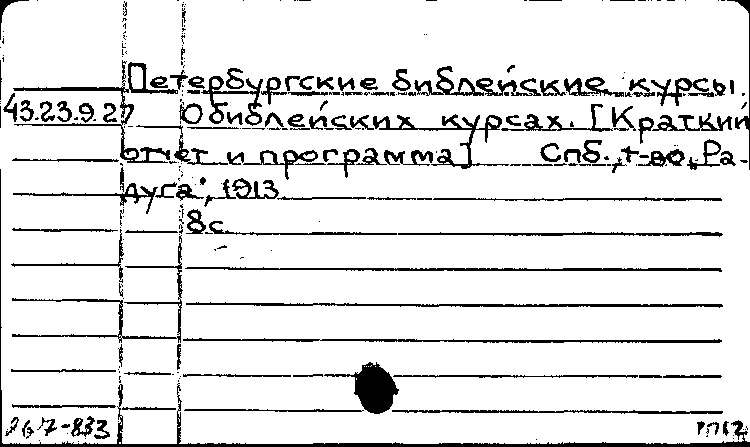 Петербургские библейские курсы.
43.23.9.27 О библейских курсах. [Краткий
отчет и программа] Спб., т-во „Ра-
дуга", 1913
8с.
267-833